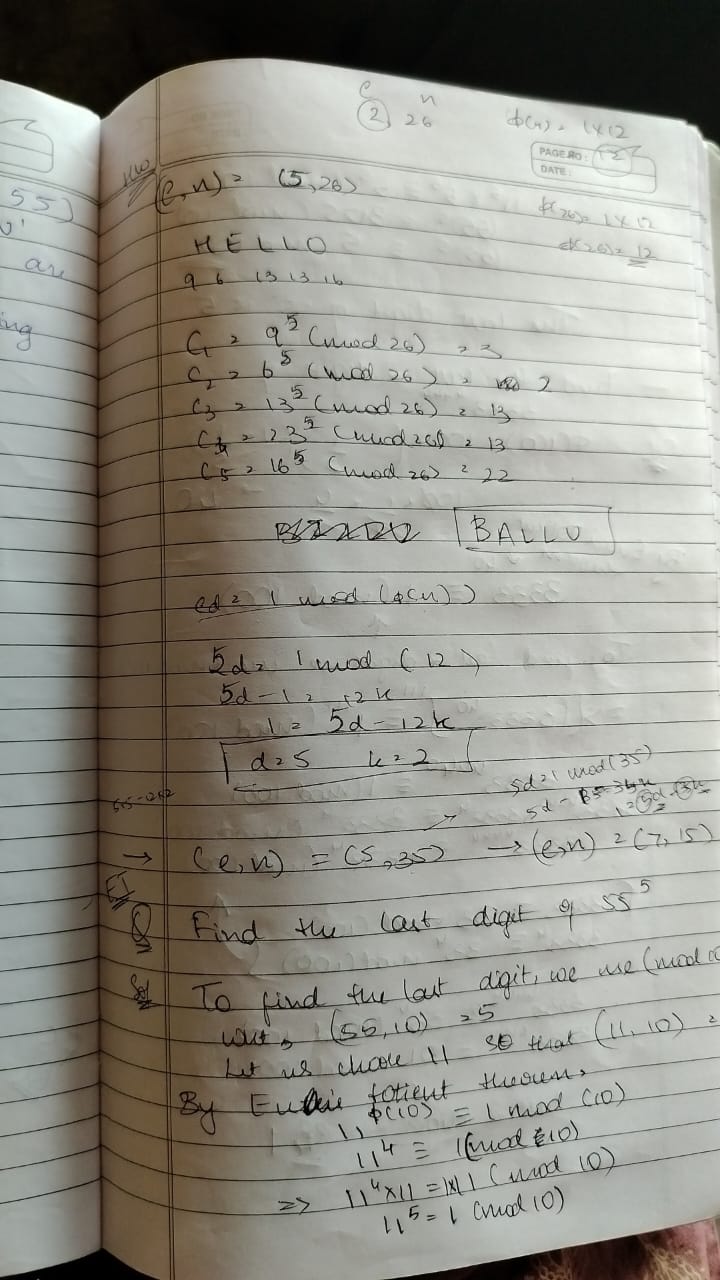 e n
2, 26
φ(n) = 1×12
PAGE NO: 12
DATE:
HW
(e,n) = (5,26)
φ(26) = 1×12
φ(26) = 12
HELLO
9 6 13 13 16
C1 = 9^5 (mod 26) = 3
C2 = 6^5 (mod 26) = 2
C3 = 13^5 (mod 26) = 13
C4 = 23^5 (mod 26) = 13
C5 = 16^5 (mod 26) = 22
BALLU
ed = 1 mod (φ(n))
5d = 1 mod (12)
5d-1 = 12k
1 = 5d-12k
d=5 k=2
5d=1 mod(35)
→ (e,n) = (5,35) → (e,n) = (7,15)
Find the last digit of 55^5
To find the last digit, we use (mod
(55,10) = 5
Let us choose 11 so that (11,10) =
By totient theorem,
11^φ(10) ≡ 1 mod (10)
11^4 ≡ 1(mod 10)
=> 11^4×11 = 1×11 (mod 10)
11^5 = 1 (mod 10)
55)
are
ing